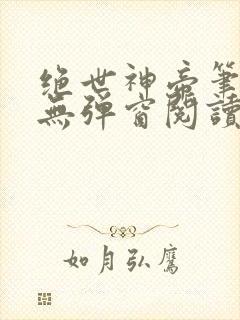 绝世神帝筆
無彈窗閱讀
如月弘鷹